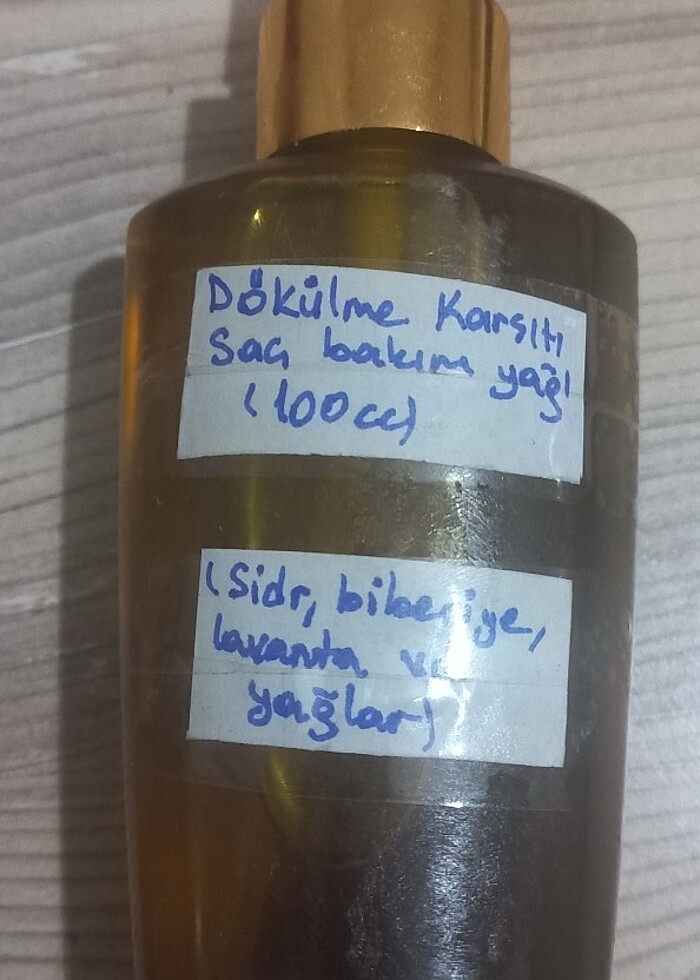 Dökülme Karsıtı
Saç bakım yağı
(100cc)
(Sidr, biberiye,
lavanta ve
yağlar)